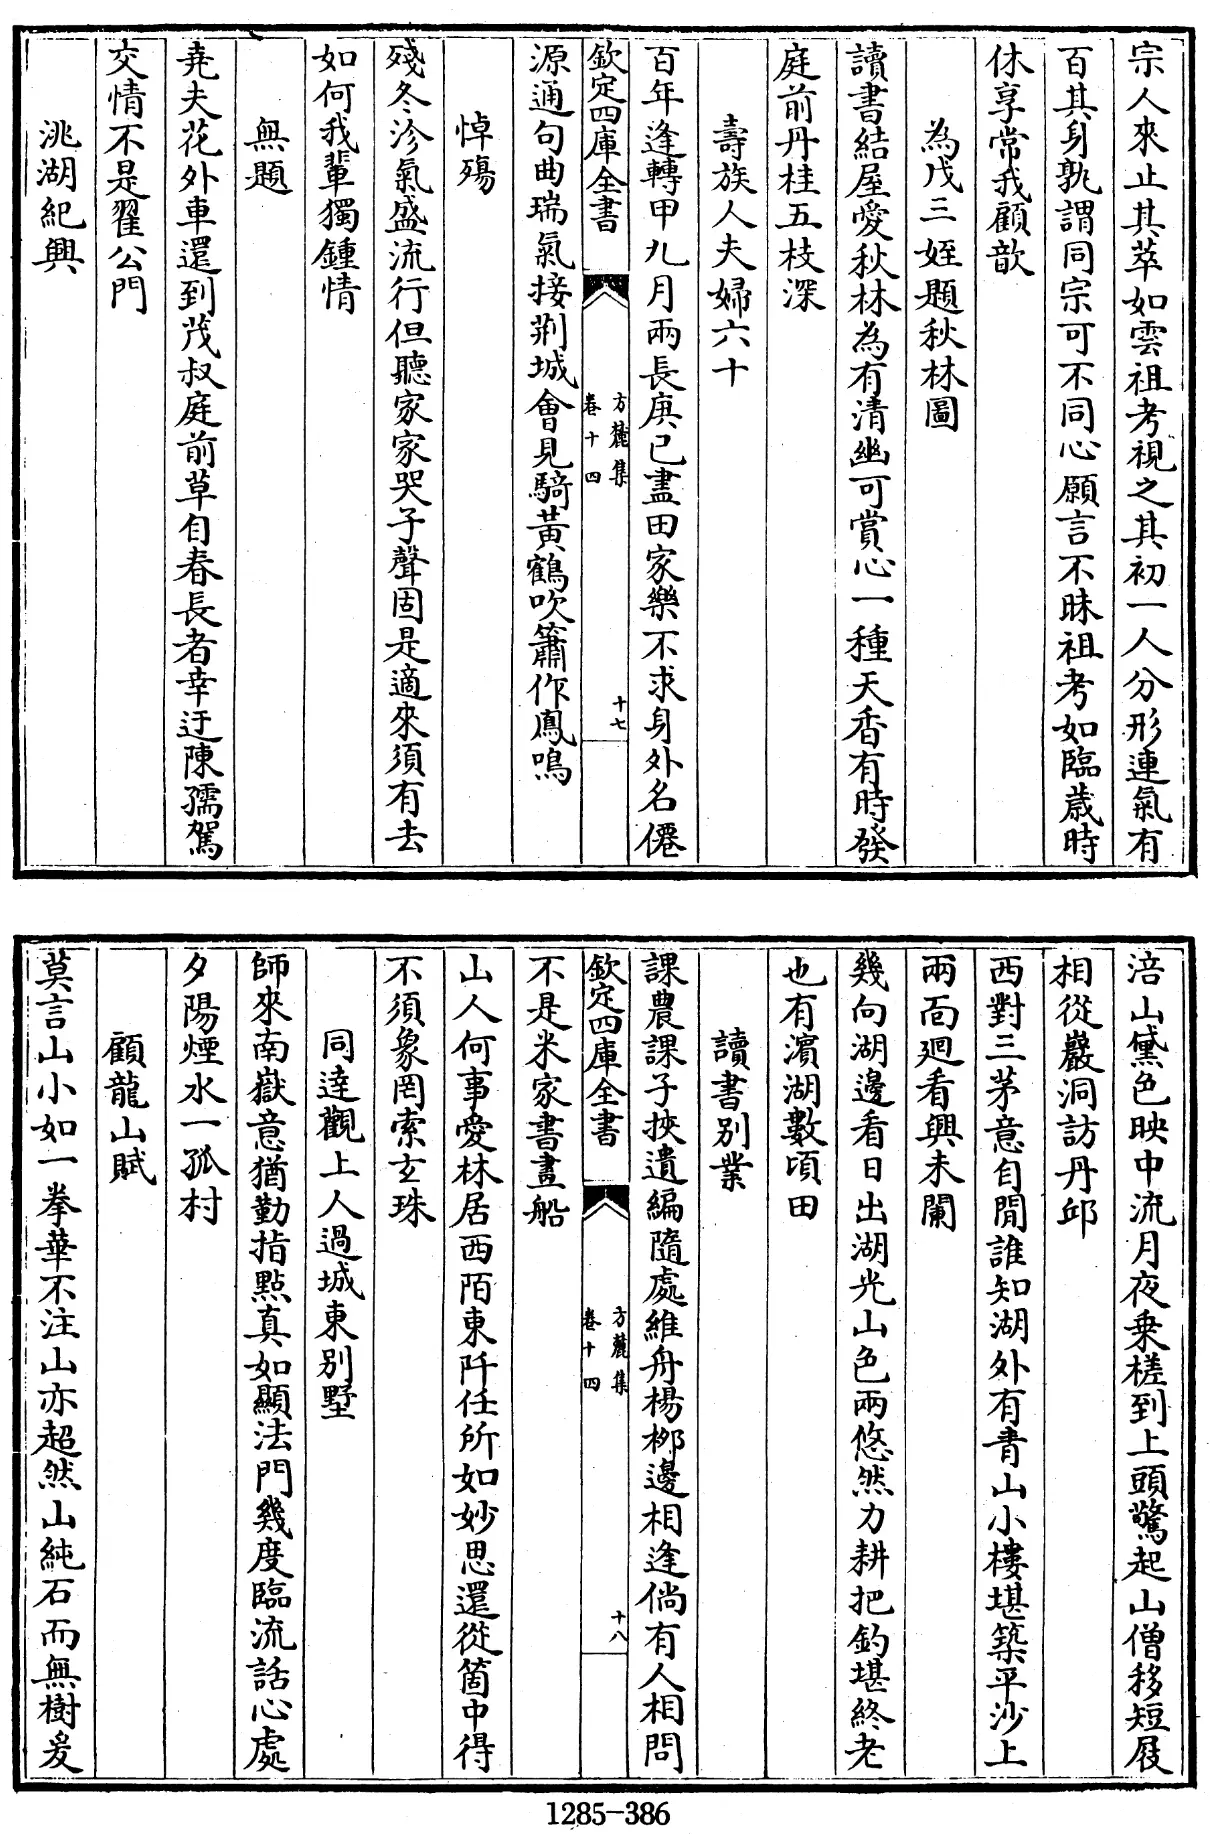 宗人來止其萃如雲祖考視之其初一人分形連氣有
百其身孰謂同宗可不同心願言不昧祖考如臨歲時
休享常我顧歆
為戊三姪題秋林圖
讀書結屋愛秋林為有清幽可賞心一種天香有時發
庭前丹桂五枝深
壽族人夫婦六十
百年逢轉甲九月兩長庚已盡田家樂不求身外名僊
欽定四庫全書
方麓集
卷十四
十七
源通句曲瑞氣接荆城會見騎黃鶴吹簫作鳳鳴
悼殤
殘冬沴氣盛流行但聽家家哭子聲固是適來須有去
如何我輩獨鍾情
無題
堯夫花外車還到茂叔庭前草自春長者幸迂陳孺駕
交情不是翟公門
洮湖紀興
涪山黛色映中流月夜乘槎到上頭驚起山僧移短屐
相從巖洞訪丹邱
西對三茅意自閒誰知湖外有青山小樓堪築平沙上
兩面迴看興未闌
幾向湖邊看日出湖光山色兩悠然力耕把釣堪終老
也有濵湖數頃田
讀書別業
課農課子挾遺編隨處維舟楊栁邊相逢倘有人相問
欽定四庫全書
方麓集
卷十四
十八
不是米家書畫船
山人何事愛林居西陌東阡任所如妙思還從箇中得
不須象罔索玄珠
同達觀上人過城東別墅
師來南嶽意猶勤指點真如顯法門幾度臨流話心處
夕陽煙水一孤村
顧龍山賦
莫言山小如一拳華不注山亦超然山純石而無樹爰
1285-386